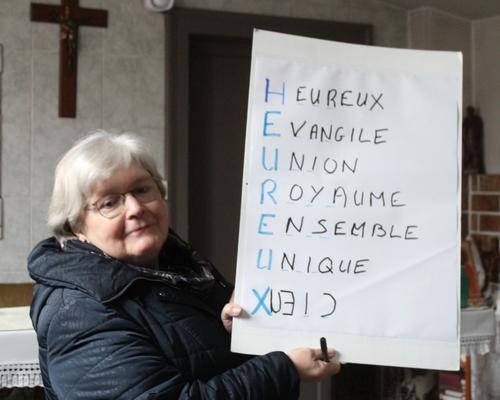 HEUREUX
EVANGILE
UNION
ROYAUME
ENSEMBLE
UNIQUE
XUƎIƆ